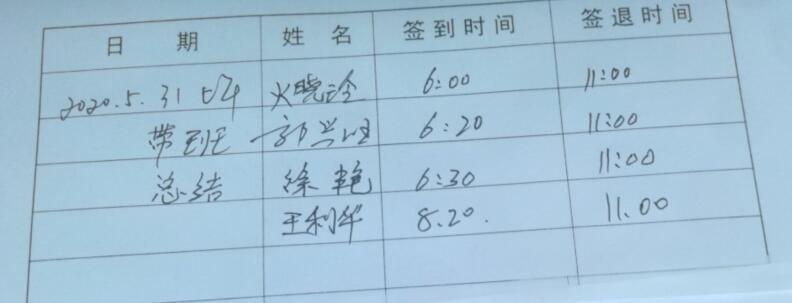 日 期 姓 名 签到时间 签退时间
2020.5.31 火晓玲 6:00 11:00
带班 郭兴旺 6:20 11:00
总结 徐艳 6:30 11:00
王利华 8.20. 11.00